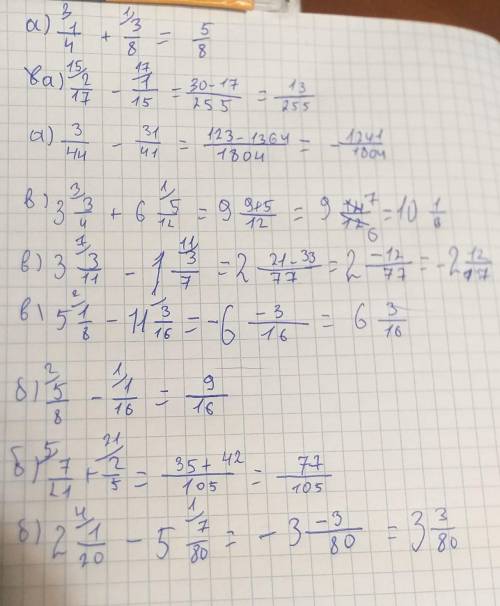 а) ³⁄ 1/4 + ¹⁄ 3/8 = 5/8
ва) ¹⁵⁄ 2/17 - ¹⁷⁄ 1/15 = 30-17/255 = 13/255
а) 3/44 - 31/41 = 123-1364/1804 = - 1241/1804
в) 3 ³⁄ 3/4 + 6 ¹⁄ 5/12 = 9 9+5/12 = 9 14/12 7/6 = 10 1/6
в) 3 ⁷⁄ 3/11 - 1 ¹¹⁄ 3/7 = 2 21-33/77 = 2 -12/77 = -2 12/77
в) 5 ²⁄ 1/8 - 11 ¹⁄ 3/16 = -6 -3/16 = 6 3/16
б) ²⁄ 5/8 - ¹⁄ 1/16 = 9/16
б) ⁵⁄ 7/21 + ²¹⁄ 2/5 = 35+42/105 = 77/105
б) 2 ⁴⁄ 1/20 - 5 ¹⁄ 7/80 = -3 -3/80 = 3 3/80